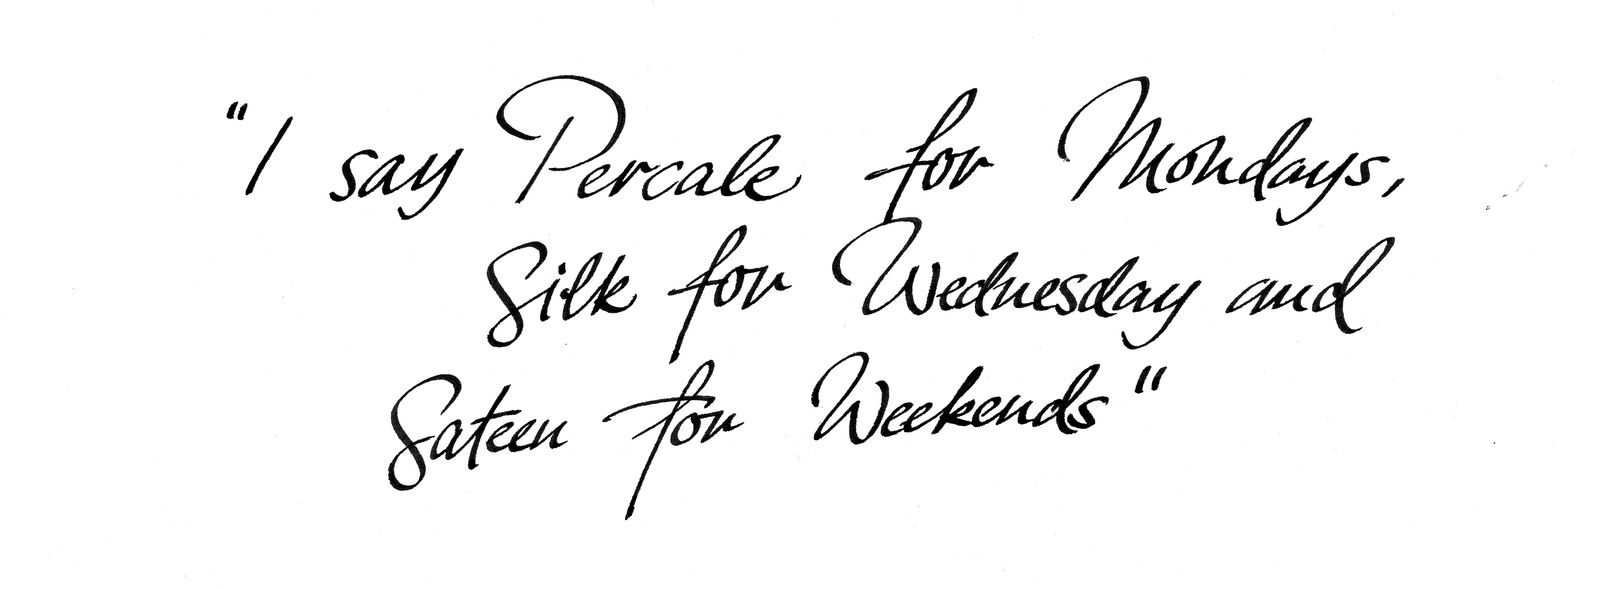 "I say Percale for Mondays,
Silk for Wednesday and
Sateen for Weekends"